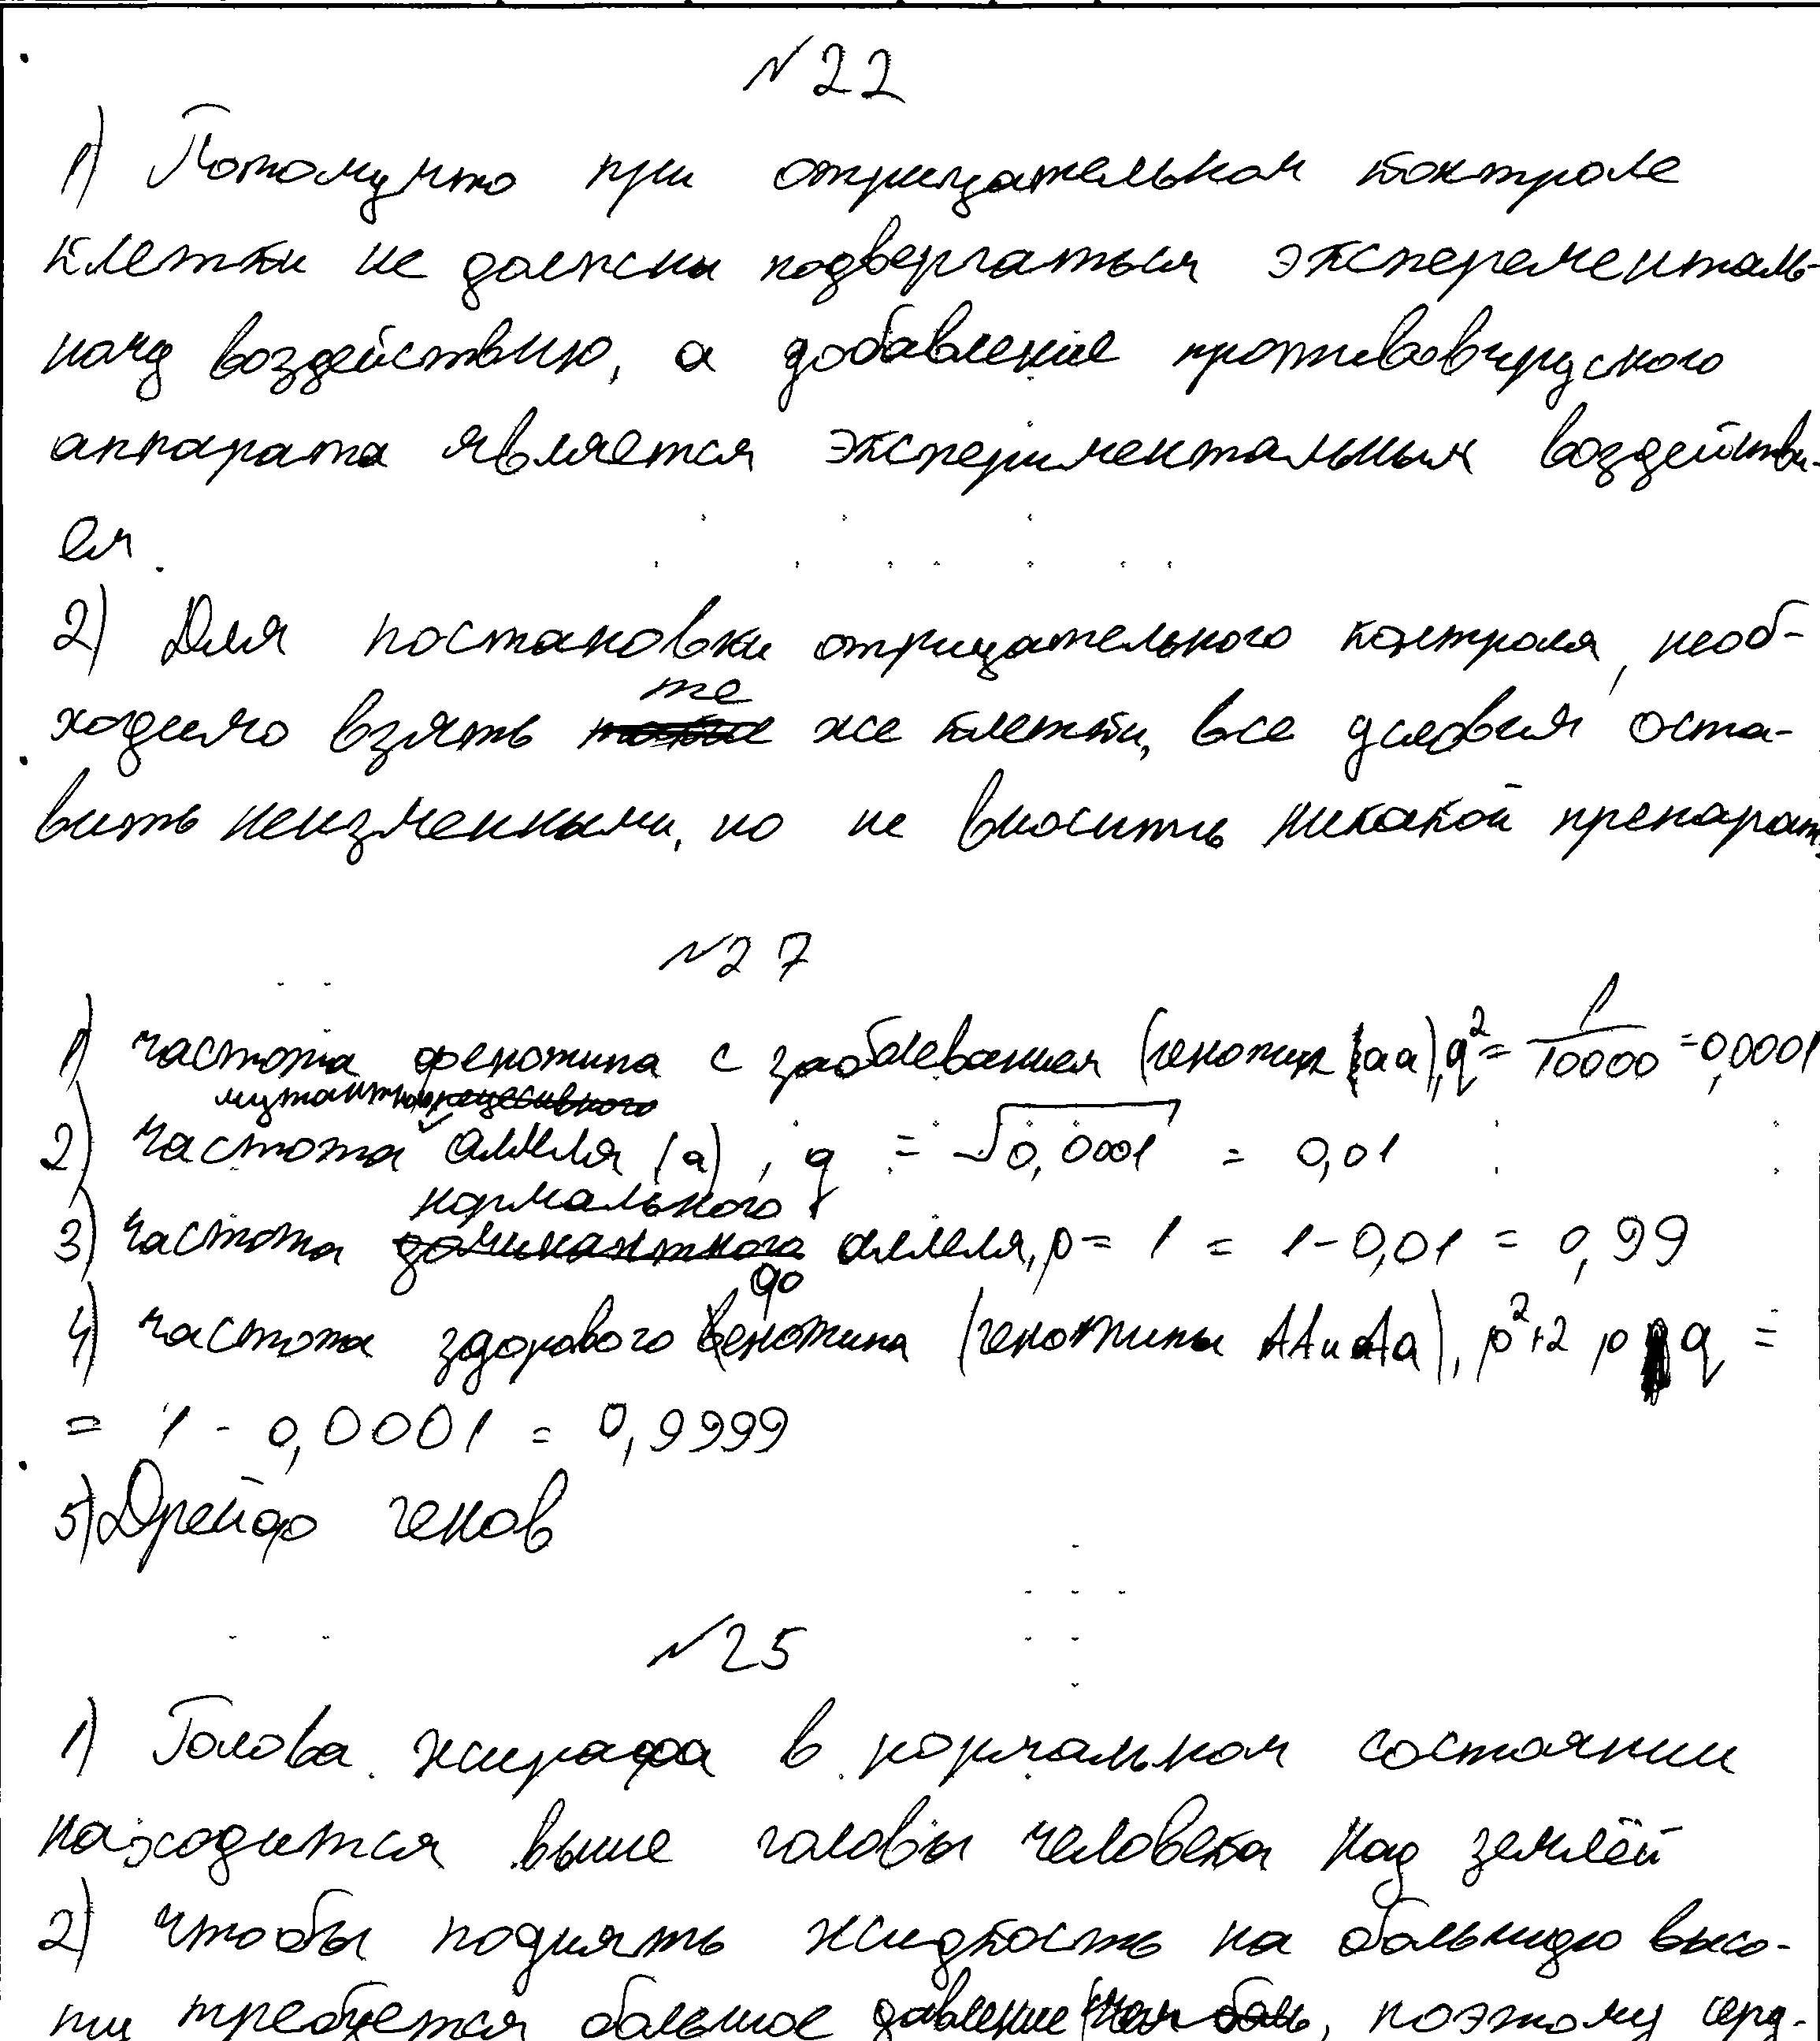 №22
1) Потомучто при отрицательном контроле
клетки не должны подвергаться эксперементаль-
ному воздействию, а добавление противовирусного
аппарата является экспериментальным воздействи-
ем.
2) Для постановки отрицательного контроля, необ-
ходимо взять те же клетки, все условия оста-
вить неизменными, но не вносить никакой препарат.
№27
1) частота фенотипа с заболеванием (генотип (аа), q² = 1/10000 = 0,0001
2) частота мутантного аллеля (а), q = √0,0001 = 0,01
3) частота нормального аллеля, p = 1 = 1-0,01 = 0,99
4) частота здорового фенотипа (генотипы АА и Аа), p²+2pq =
= 1 - 0,0001 = 0,9999
5) Дрейф генов
№25
1) Голова жирафа в нормальном состоянии
находится выше головы человека над землёй
2) чтобы поднять жидкость на большую высо-
ту требуется большое давление, поэтому серд-